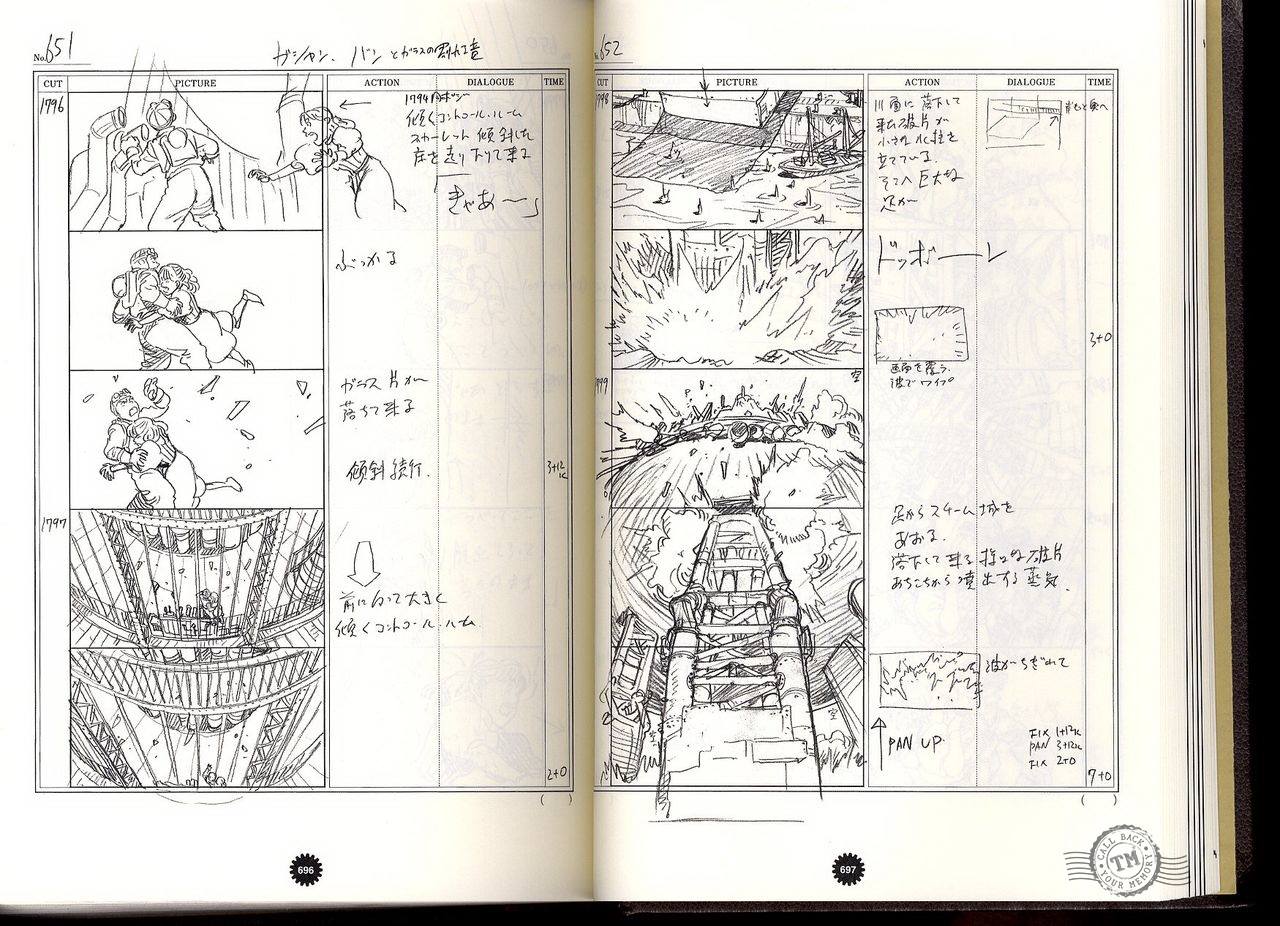 No. 651
ガシャン、バンとガラスの割れる音
CUT
PICTURE
ACTION
DIALOGUE
TIME
1796
1794同ポジ
傾くコントロールルーム
スカーレット 傾斜した
床を走り下りて来る
きゃあ〜」
ぶつかる
ガラス片が
落ちて来る
傾斜続行.
3+12K
1797
前に向って大きく
傾くコントロールルーム
2+0
( )
696
No. 652
CUT
PICTURE
ACTION
DIALOGUE
TIME
1798
川面に落下して
来る破片が
小さな水柱を
立てている.
そこへ巨大な
足が
ドッボーーン
画面を覆う.
波でワイプ
3+0
空
足からスチーム城を
あおる.
落下して来る 破片
あちこちから噴出する蒸気.
波がちぎれて
PAN UP
FIX 1+12K
PAN 3+12K
FIX 2+0
7+0
( )
697
CALL BACK
TM
YOUR MEMORY